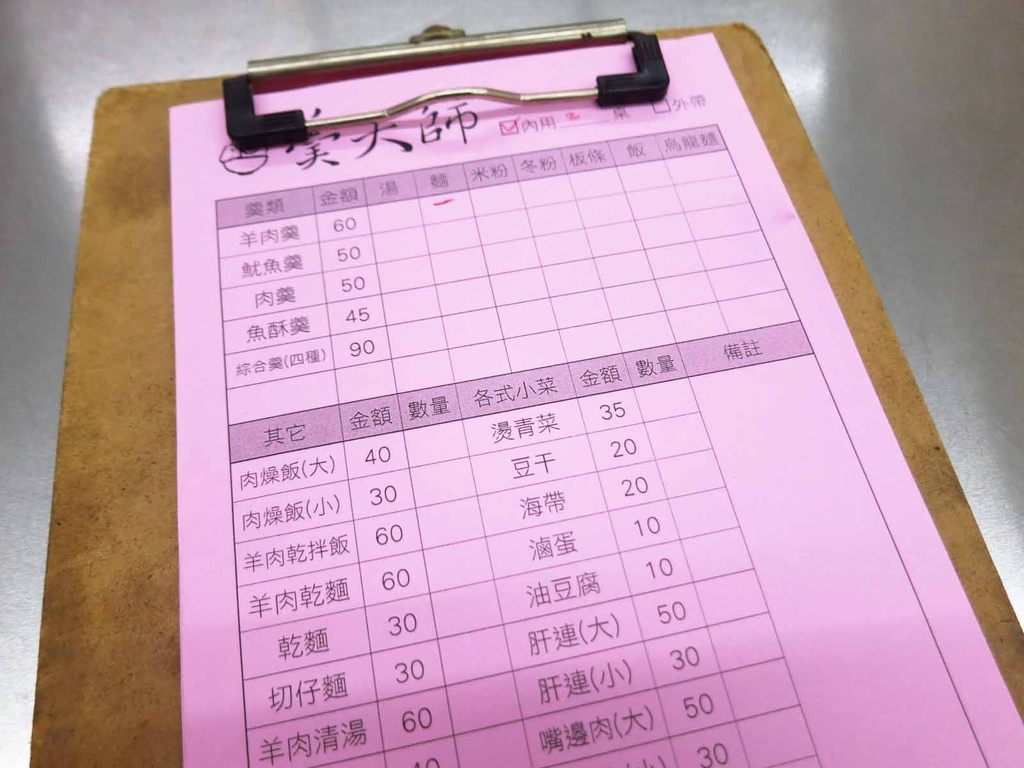 羹大師 ☑內用 2 桌 ☐外帶
羹類 金額 湯 麵 米粉 冬粉 板條 飯 烏龍麵
羊肉羹 60 一
魷魚羹 50
肉羹 50
魚酥羹 45
綜合羹(四種) 90
其它 金額 數量 各式小菜 金額 數量 備註
肉燥飯(大) 40 燙青菜 35
肉燥飯(小) 30 豆干 20
羊肉乾拌飯 60 海帶 20
羊肉乾麵 60 滷蛋 10
乾麵 30 油豆腐 10
切仔麵 30 肝連(大) 50
羊肉清湯 60 肝連(小) 30
40 嘴邊肉(大) 50
(小) 30